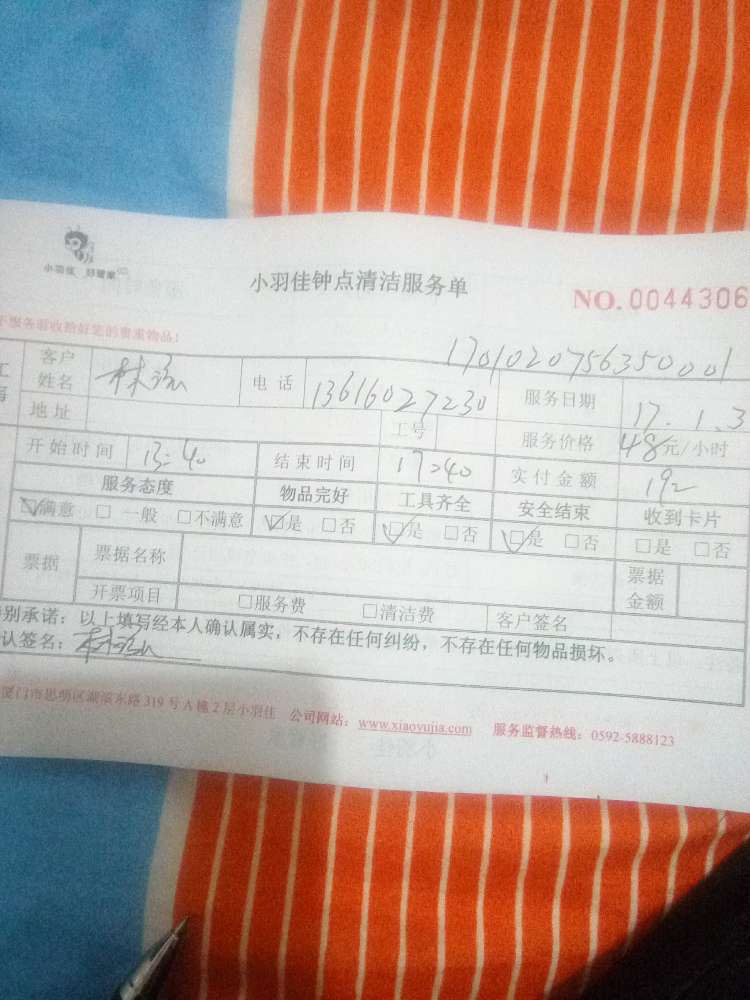 小羽佳 好管家
小羽佳钟点清洁服务单
NO. 0044306
服务前收拾好您的贵重物品!
1701020756350001
客户姓名 林 电话 13616027230 服务日期 17.1.3
地址 工号 服务价格 48元/小时
开始时间 13:40 结束时间 17:40 实付金额 192
服务态度 物品完好 工具齐全 安全结束 收到卡片
☑满意 □一般 □不满意 ☑是 □否 ☑是 □否 ☑是 □否 □是 □否
票据 票据名称 票据金额
开票项目 □服务费 □清洁费 客户签名
别承诺:以上填写经本人确认属实,不存在任何纠纷,不存在任何物品损坏。
认签名: 林
厦门市思明区湖滨东路319号A栋2层小羽佳 公司网站:www.xiaoyujia.com 服务监督热线:0592-5888123